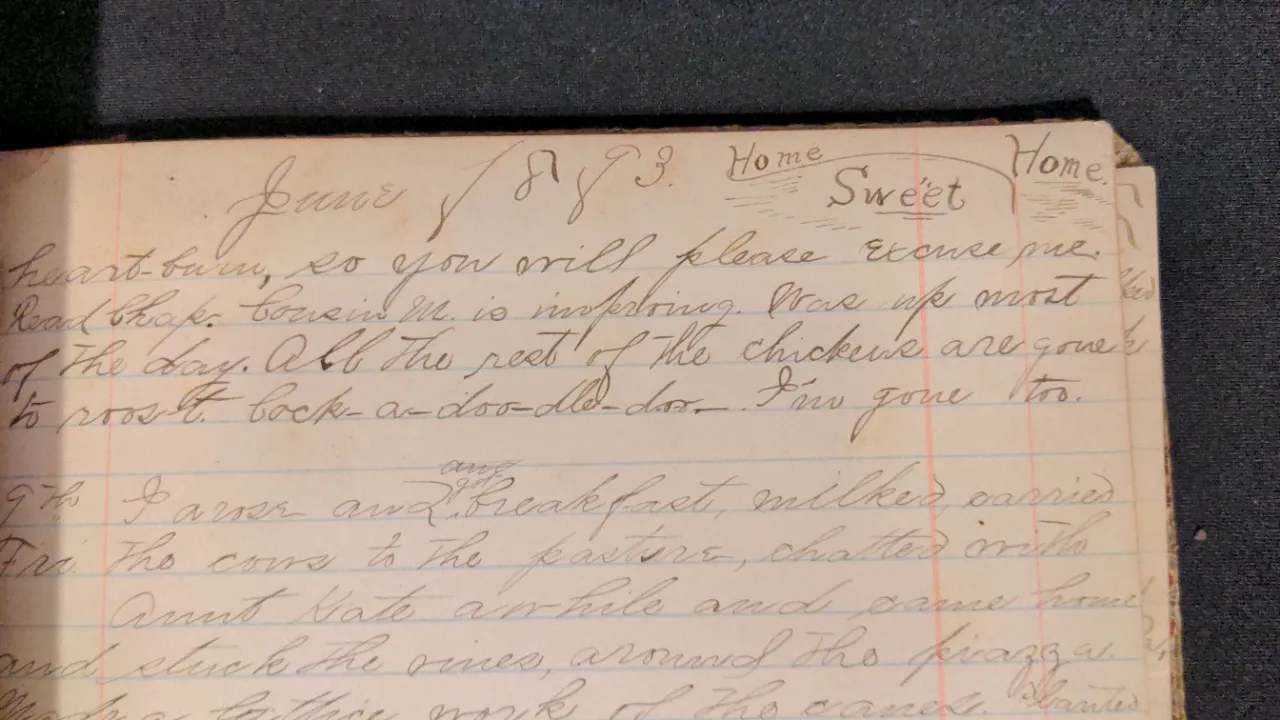 June 1893. Home Sweet Home.
heart-burn, so you will please excuse me.
Read Chap. Cousin M. is improving. Was up most
of the day. All the rest of the chickens are gone
to roost. Cock-a-doo-dle-doo. I'm gone too.
9th I arose and got breakfast, milked, carried
Fri. the cows to the pasture, chatted with
Aunt Kate awhile and came home
and stuck the vines, around the piazza.
Made a lattice work of the canes. Planted